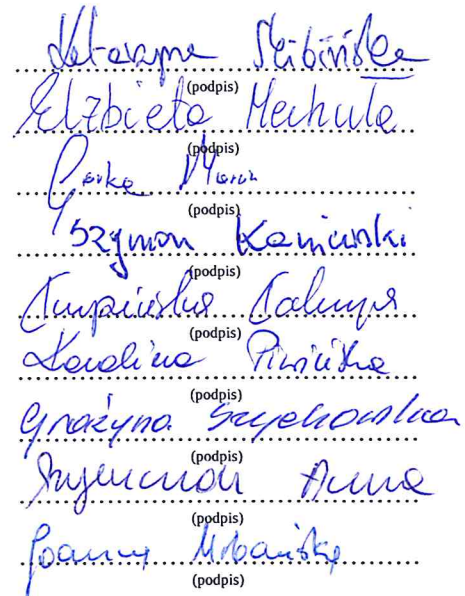 Katarzyna Skibińska
(podpis)
Elżbieta Mechuła
(podpis)
Marcin
(podpis)
Szymon Kaniewski
(podpis)
(podpis)
Karolina Piwińska
(podpis)
Grażyna Szychowska
(podpis)
Anna
(podpis)
Joanna Urbańska
(podpis)